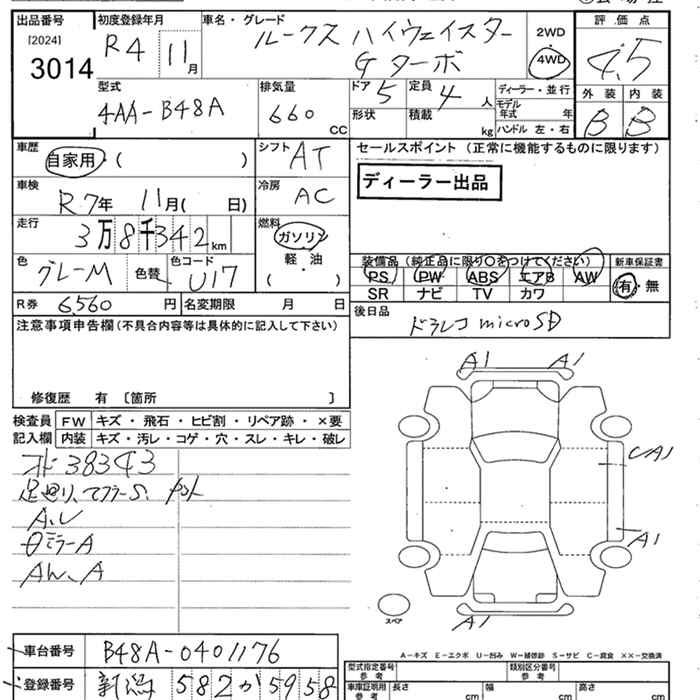 出品番号 [2024] 3014
初度登録年月 R4 11月
車名・グレード ルークス ハイウェイスター
Gターボ
2WD
4WD
評価点 4.5
型式 4AA-B48A
排気量 660 CC
ドア 5
定員 4人
形状
積載 kg
ディーラー・並行
モデル年式 年
ハンドル 左・右
外装 B
内装 B
車歴 自家用・( )
シフト AT
車検 R7年 11月( 日)
冷房 AC
走行 3万8千342km
燃料 ガソリン
軽・油
( )
色 グレーM
色替
色コード U17
R券 6,560円
名変期限 月 日
セールスポイント (正常に機能するものに限ります)
ディーラー出品
装備品(純正品に限り○をつけてください)
新車保証書
PS PW ABS エアB AW
有・無
SR ナビ TV カワ
後日品 ドラレコ microSD
注意事項申告欄(不具合内容等は具体的に記入して下さい)
修復歴 有 〔箇所 〕
検査員記入欄
FW キズ・飛石・ヒビ割・リペア跡・×要
内装 キズ・汚レ・コゲ・穴・スレ・キレ・破レ
38343
A.U
ミラーA
AW、A
A1 A1
A1
A1
スペア
A1
車台番号 B48A-0401176
登録番号 新潟 582 か 5958
A-キズ E-エクボ U-凹み W-補修跡 S-サビ C-腐食 XX-交換済
型式指定番号 参考
類別区分番号 参考
車庫証明用 参考
長さ cm
幅 cm
高さ cm